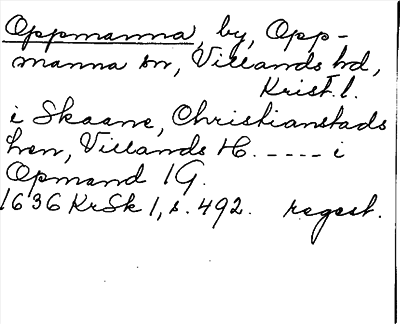 Oppmanna, by, Opp-
manna sn, Villands hd,
Krist. l.
i Skaane, Christianstads
len, Villands H. ----- i
Opmand 1 G.
1636 KrSk 1, s. 492. regest.